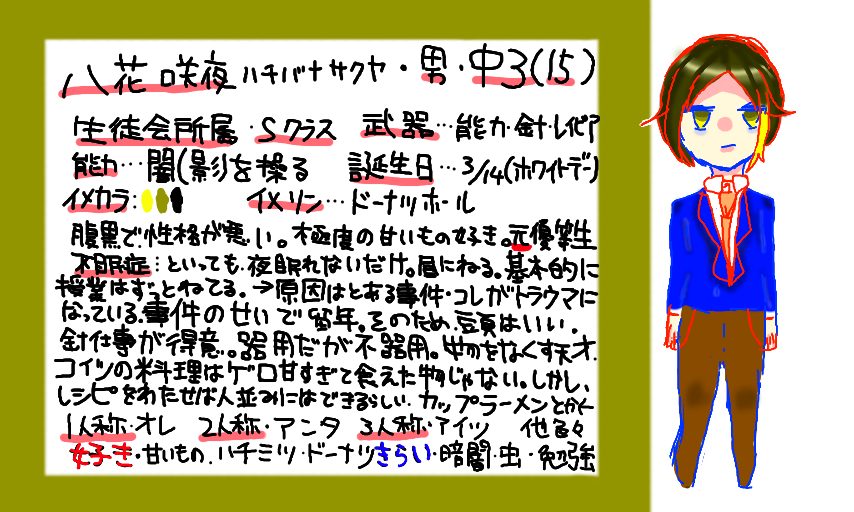 八花 咲夜 ハチバナサクヤ・男・中3(15)
生徒会所属・Sクラス 武器…能力・針・レイピア
能力…闇(影)を操る 誕生日…3/14(ホワイトデー)
イメカラ: イメソン…ドーナツホール
腹黒で性格が悪い。極度の甘いもの好き。元優等生
不眠症:といっても夜眠れないだけ。昼にねる。基本的に
授業はずっとねてる。→原因はとある事件・コレがトラウマに
なっている。事件のせいで留年。そのため、頭はいい。
針仕事が得意。器用だが不器用。物をなくす天才。
コイツの料理はゲロ甘すぎて食えた物じゃない。しかし、
レシピをわたせば人並みにはできるらしい。カップラーメンとかく
1人称・オレ 2人称・アンタ 3人称・アイツ 他色々
好き・甘いもの.ハチミツ・ドーナツ きらい・暗闇・虫・勉強